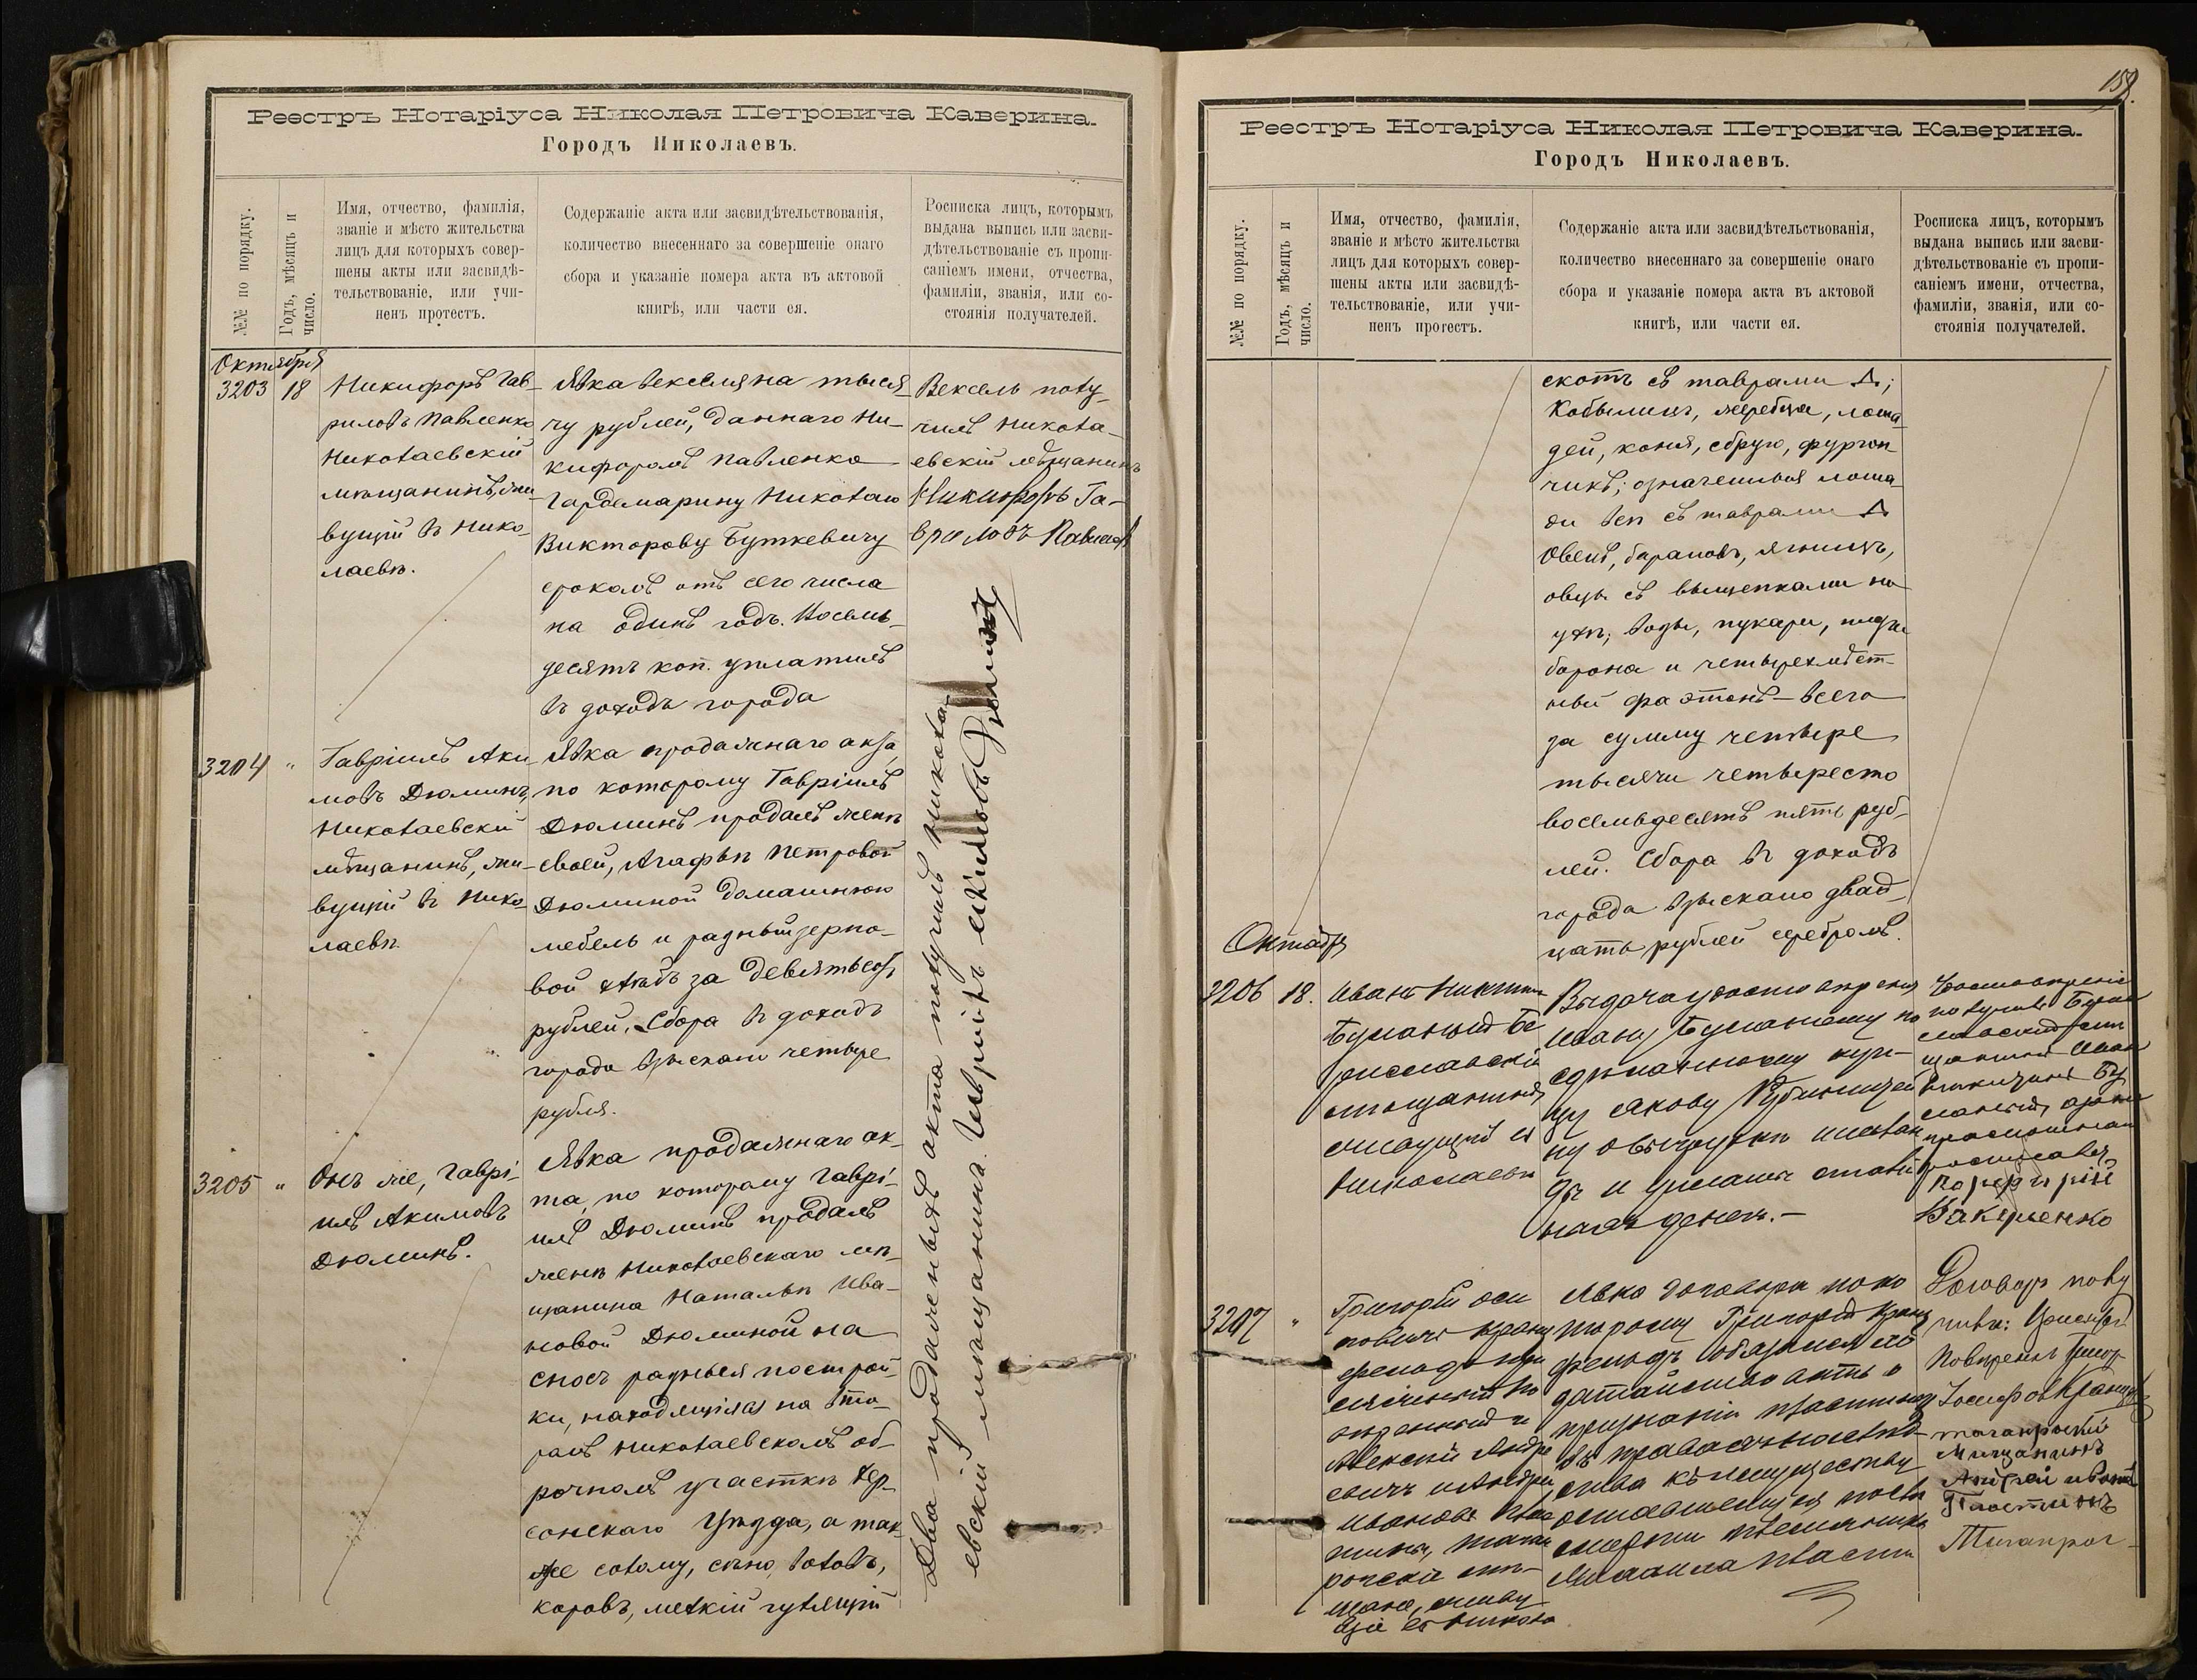 Реестръ Нотаріуса Николая Петровича Каверина.
Городъ Николаевъ.
№№ по порядку.
Годъ, мѣсяцъ и
число.
Имя, отчество, фамилія,
званіе и мѣсто жительства
лицъ для которыхъ совер-
шены акты или засвидѣ-
тельствованіе, или учи-
ненъ протестъ.
Содержаніе акта или засвидѣтельствованія,
количество внесеннаго за совершеніе онаго
сбора и указаніе номера акта въ актовой
книгѣ, или части ея.
Росписка лицъ, которымъ
выдана выпись или засви-
дѣтельствованіе съ пропи-
саніемъ имени, отчества,
фамиліи, званія, или со-
стоянія получателей.
Октября
3203 18
Никифоръ Гав-
риловъ Павленко
Николаевскій
мѣщанинъ, жи-
вущій въ Нико-
лаевѣ.
Явка векселя на тыся-
чу рублей, даннаго Ни-
кифоромъ Павленко
Гардемарину Николаю
Викторову Буткевичу
срокомъ отъ сего числа
на одинъ годъ. Восемь-
десятъ коп. уплатилъ
въ доходъ города
Вексель полу-
чилъ Никола-
евскій мѣщанинъ
Никифоръ Га-
вриловъ
3204 "
Гавріилъ Аки-
мовъ Дюминъ,
Николаевскій
мѣщанинъ, жи-
вущій въ Нико-
лаевѣ
Явка продажнаго акта,
по которому Гавріилъ
Дюминъ продалъ женѣ
своей, Агафьѣ Петровой
Дюминой домашнюю
мебель и разный зерно-
вой хлѣбъ за девятьсотъ
рублей. Сбора въ доходъ
города взыскано четыре
рубля.
3205 "
Онъ же, Гаврі-
илъ Акимовъ
Дюминъ.
Явка продажнаго ак-
та, по которому Гаврі-
илъ Дюминъ продалъ
женѣ Николаевскаго мѣ-
щанина Натальѣ Ива-
новой Дюминой на
сносъ разныя построй-
ки, находящіяся на вто-
ромъ Николаевскомъ об-
рочномъ участкѣ Хер-
сонскаго Уѣзда, а так-
же солому, сѣно, воловъ,
коровъ, мелкій гулящій
Два продажныхъ акта получилъ Никола-
евскій мѣщанинъ Гавріилъ Акимовъ Дюминъ
159.
Реестръ Нотаріуса Николая Петровича Каверина.
Городъ Николаевъ.
№№ по порядку.
Годъ, мѣсяцъ и
число.
Имя, отчество, фамилія,
званіе и мѣсто жительства
лицъ для которыхъ совер-
шены акты или засвидѣ-
тельствованіе, или учи-
ненъ протестъ.
Содержаніе акта или засвидѣтельствованія,
количество внесеннаго за совершеніе онаго
сбора и указаніе номера акта въ актовой
книгѣ, или части ея.
Росписка лицъ, которымъ
выдана выпись или засви-
дѣтельствованіе съ пропи-
саніемъ имени, отчества,
фамиліи, званія, или со-
стоянія получателей.
скотъ съ таврами
Кобылицъ, жеребца, лоша-
дей, коня, сбрую, фургон-
чикъ; означенныя лоша-
ди всѣ съ таврами
Овецъ, барановъ, ягницъ,
овцы съ выщепками на
ухѣ; возы,
борона и четырехмѣст-
ный фаэтонъ - всего
за сумму четыре
тысячи четыресто
восемьдесятъ пять руб-
лей. Сбора въ доходъ
города взыскано двад-
цать рублей серебромъ.
Октября
3206 18.
Иванъ
мѣщанинъ,
живущій въ
Николаевѣ
Выдача удостовѣренія
Ивану
Якову
денегъ. -
Удостовѣреніе
получилъ
Иванъ
росписался
Порфирій
Вакуленко
3207 "
Григорій Оси-
повичъ
Иванова
мѣ-
щане, живу-
щіе въ Никола
Явка договора по ко-
торому Григорій
обязался хо-
датайствовать о
признаніи
въ правахъ наслѣд-
ства къ имуществу
оставшемуся послѣ
смерти племянника
Михаила
Договоръ полу-
чили:
Повѣренный
таганрогскій
Мищанинъ
Андрей
Таганрог-